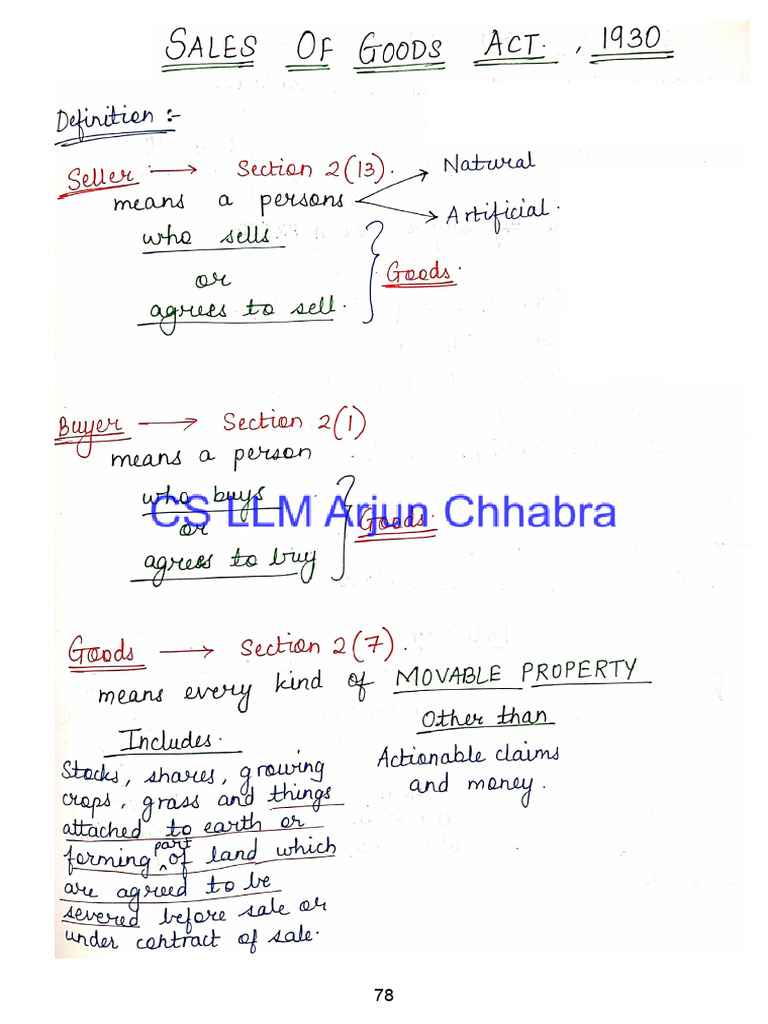 SALES OF GOODS ACT., 1930
Definition :-
Seller → Section 2(13).
means a persons
Natural
Artificial.
who sells
or
agrees to sell.
Goods.
Buyer → Section 2(1)
means a person
who buys
or
agress to buy
Goods.
CS LLM Arjun Chhabra
Goods → Section 2(7).
means every kind of MOVABLE PROPERTY
Other than
Actionable claims
and money.
Includes.
Stocks, shares, growing
crops, grass and things
attached to earth or
forming part of land which
are agreed to be
severed before sale or
under contract of sale.
78